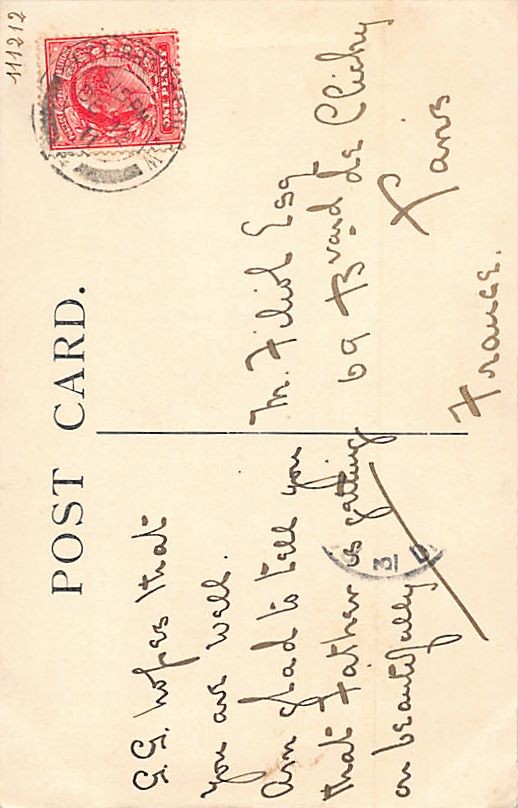 111212
POST CARD.
ONE PENNY
G.G. hopes that
you are well.
Am glad to tell you
that Father is getting
on beautifully
M. Filiol Esq
69 Bvard de Clichy
Paris
France.